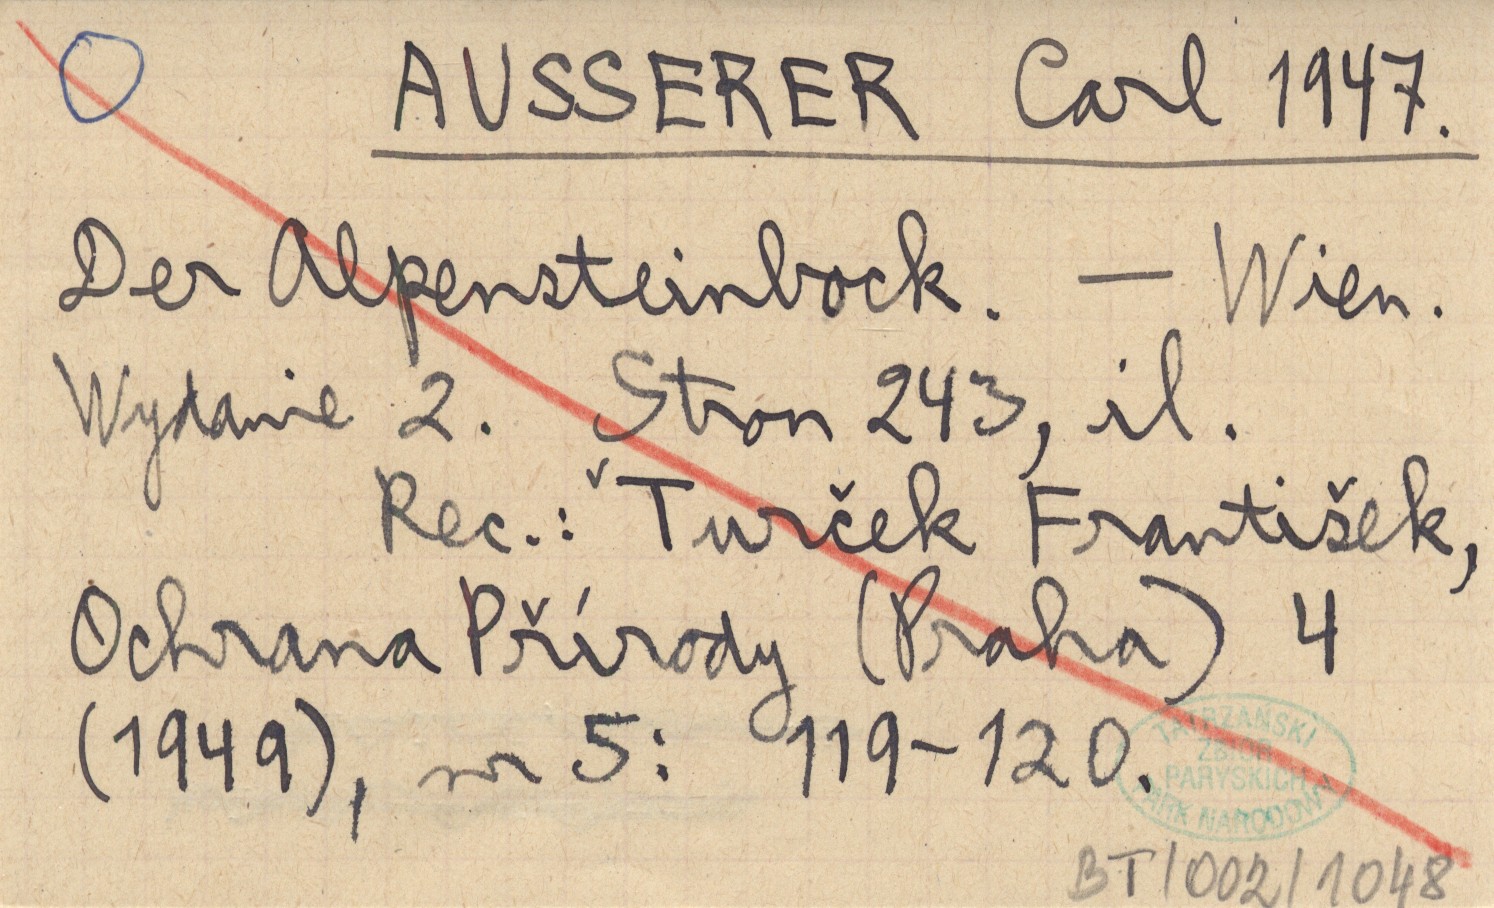 AUSSERER Carl 1947.
Der Alpensteinbock. — Wien.
Wydanie 2. Stron 243, il.
Rec.: ˇTurček František,
Ochrana Přírody (Praha) 4
(1949), nr 5: 119-120.
TATRZAŃSKI
ZBIÓR
PARYSKICH
PARK NARODOWY
BT/002/1048